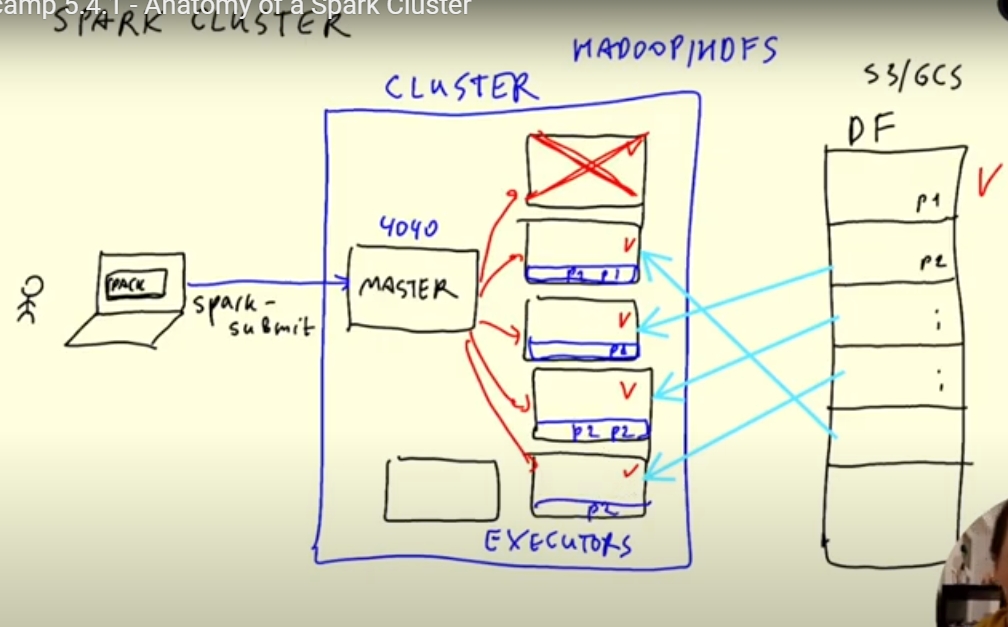 camp 5.4.1 - Anatomy of a Spark Cluster
SPARK CLUSTER
HADOOP/HDFS
S3/GCS
CLUSTER
DF
4040
MASTER
SPARK
spark-
submit
p1
p2
p1
p2 p2
p2
EXECUTORS